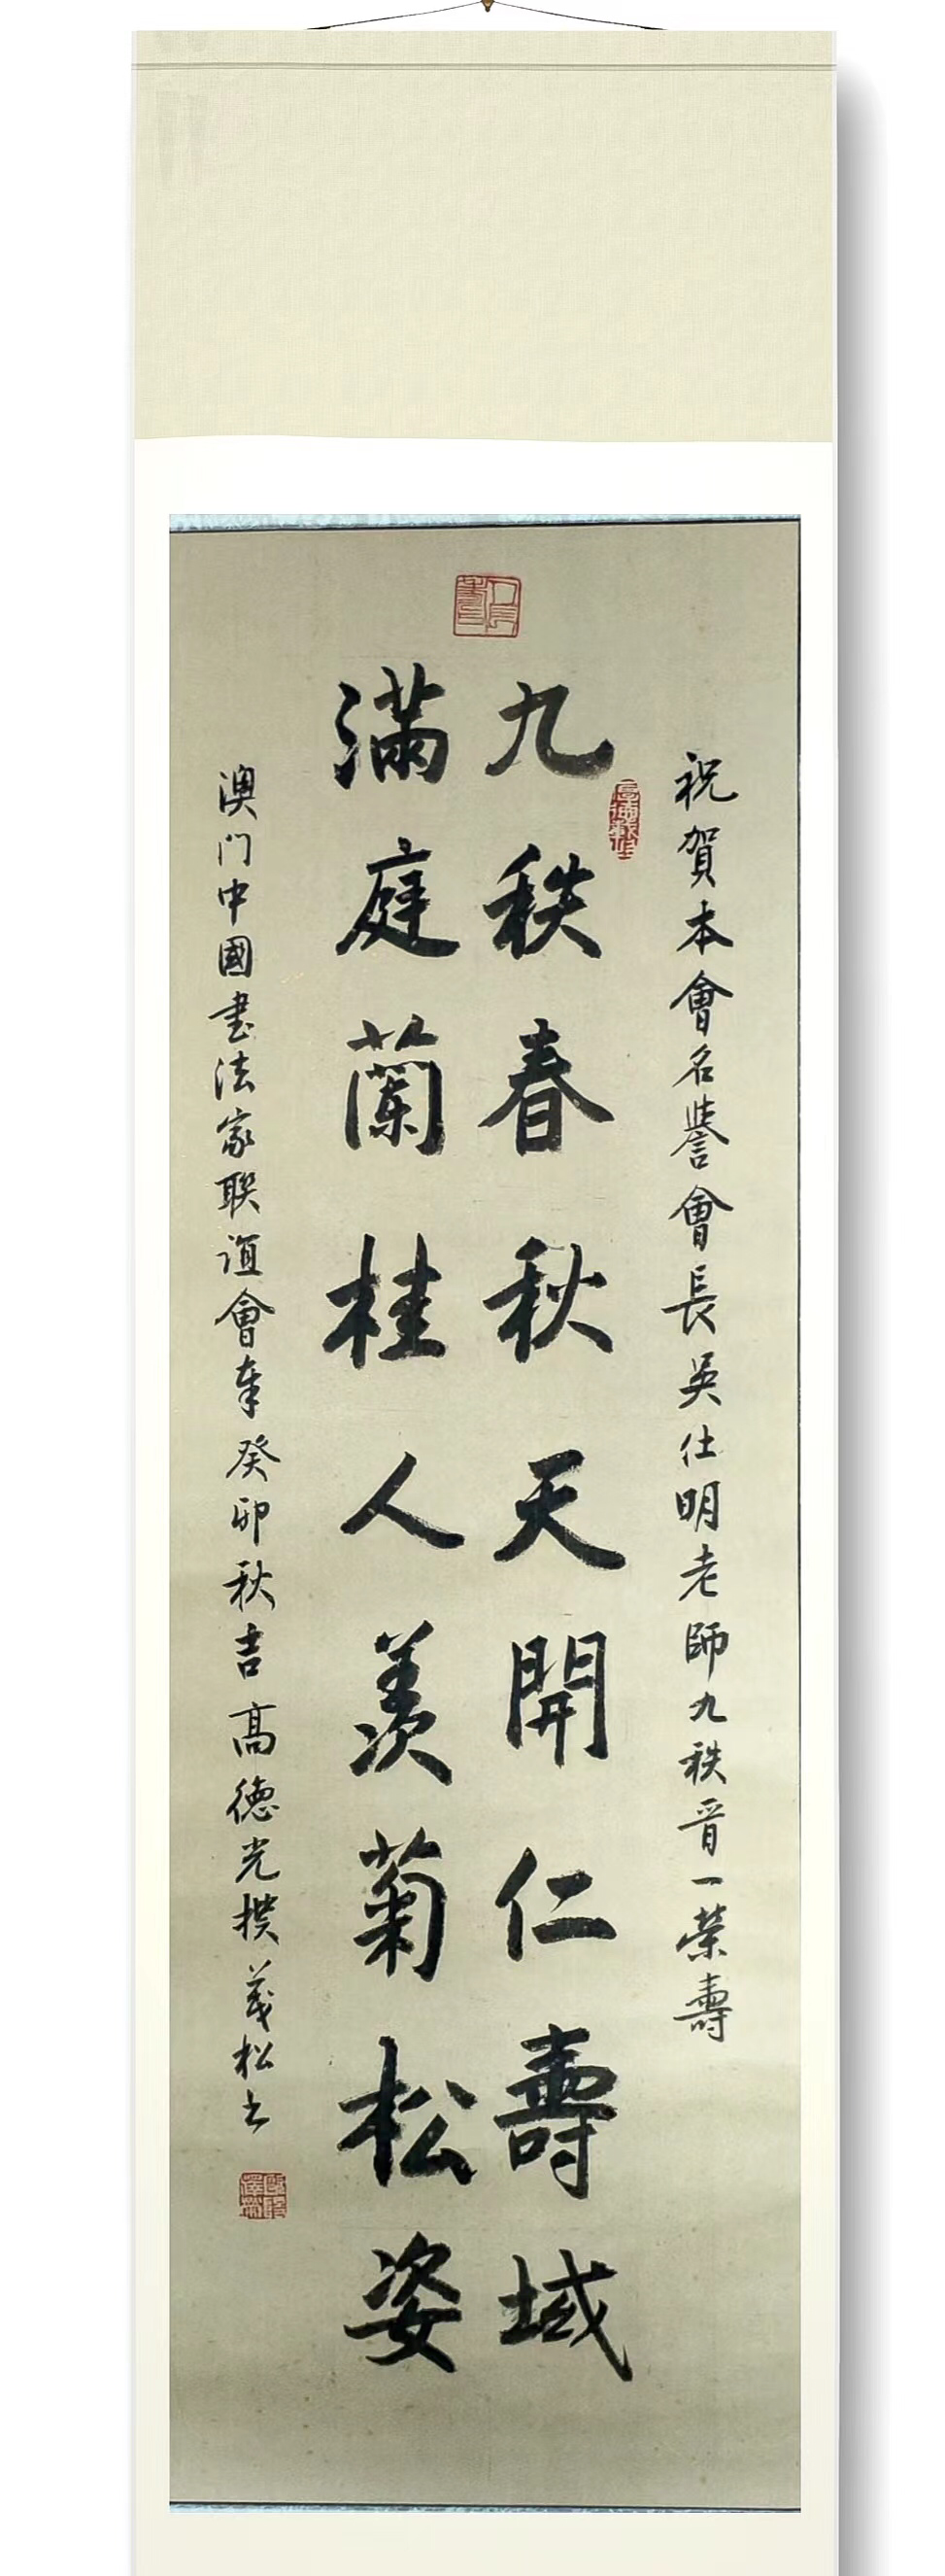 祝賀本會名譽會長吳仕明老師九秩晉一榮壽
九秩春秋天開仁壽域
滿庭蘭桂人羨菊松姿
澳门中國書法家联誼會奉癸卯秋吉高德光撰義松书